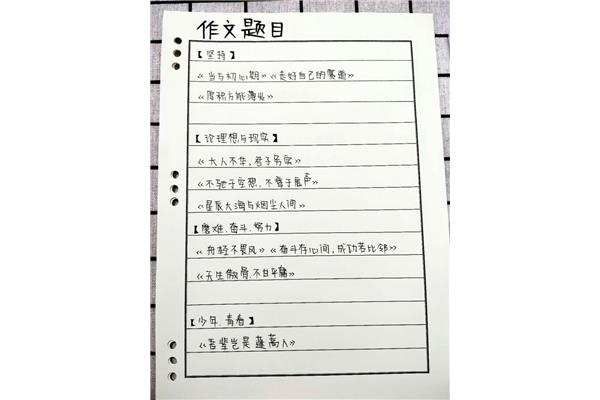 作文题目
【坚持】
《当与初心期》《走好自己的赛道》
《厚积方能薄发》
【论理想与现实】
《大人不华，君子务实》
《不驰于空想，不骛于虚声》
《星辰大海与烟尘人间》
【磨难、奋斗、努力】
《舟轻不畏风》《奋斗存心间，成功若比邻》
《天生傲骨、不甘平庸》
【少年、青春】
《吾辈岂是蓬蒿人》